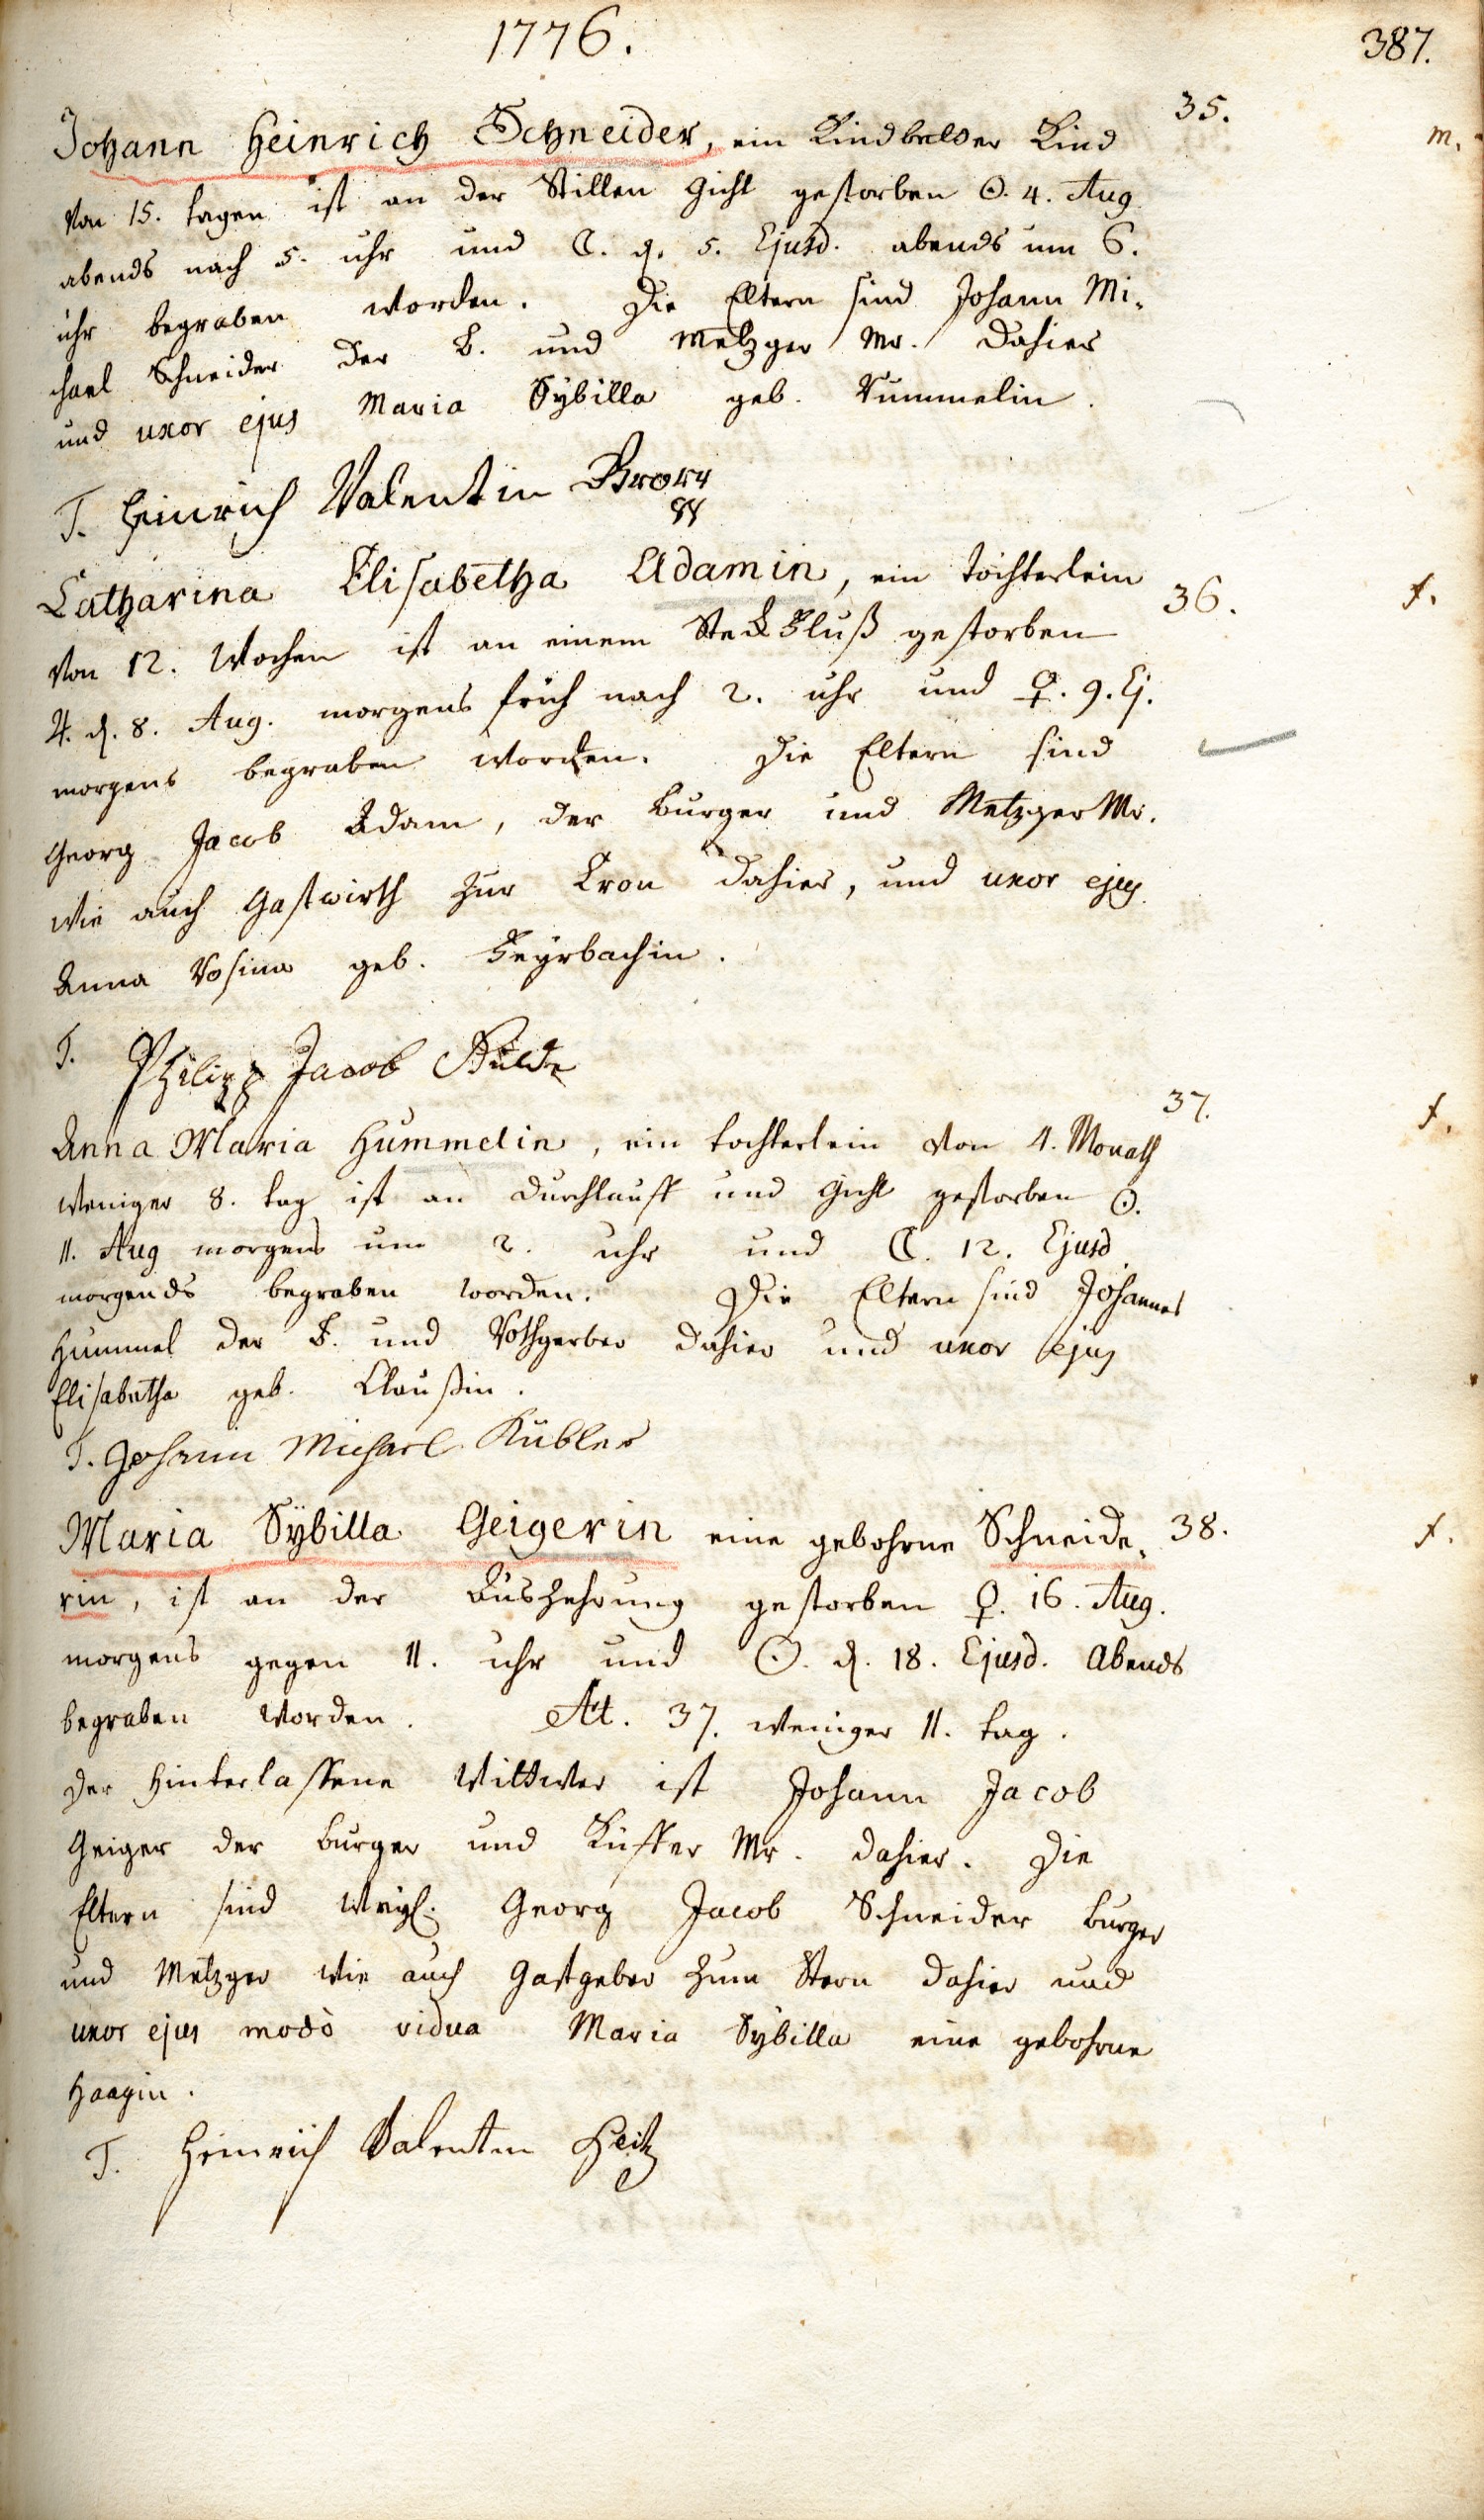 1776.
387.
35.
m.
Johann Heinrich Schneider, ein Kindbelder Kind
von 15. tagen ist an der Stillen Gicht gestorben ☉. 4. Aug
abends nach 5. uhr und ☾. d. 5. Ejusd. abends um 6.
uhr begraben worden. Die Eltern sind Johann Mi-
chael Schneider der B. und Metzger Mr. dahier
und uxor ejus Maria Sybilla geb. Rummelin.
T. Heinrich Valentin
Catharina Elisabetha Adamin, ein töchterlein
36.
f.
von 12. Wochen ist an einem Steckfluß gestorben
♃. d. 8. Aug. morgens früh nach 2. uhr und ♀. 9. Ej.
morgens begraben worden. Die Eltern sind
Georg Jacob Adam, der burger und Metzger Mr.
wie auch Gastwirth zur Cron dahier, und uxor ejus
Anna Rosina geb. Feyrbachin.
T. Philipp Jacob
37.
f.
Anna Maria Hummelin, ein tochterlein von 4. Monath
weniger 8. tag ist an Durchlauff und Gicht gestorben ☉.
11. Aug morgens um 2. uhr und ☾. 12. Ejusd
morgends begraben worden. Die Eltern sind Johannes
Hummel der B. und Rothgerber dahier und uxor ejus
Elisabetha geb. Claußin.
T. Johann Michael Kübler
Maria Sybilla Geigerin eine gebohrne Schneide-
38.
f.
rin, ist an der Auszehrung gestorben ♀. 16. Aug.
morgens gegen 11. uhr und ☉. d. 18. Ejusd. Abends
begraben worden. Æt. 37. weniger 11. tag.
Der hinterlassene Wittwer ist Johann Jacob
Geiger der burger und Küffer Mr. dahier. Die
Eltern sind weyl. Georg Jacob Schneider burger
und Metzger wie auch Gastgeber zum Stern dahier und
uxor ejus modò vidua Maria Sybilla eine gebohrne
Haagin.
T. Heinrich Valentin Heitz